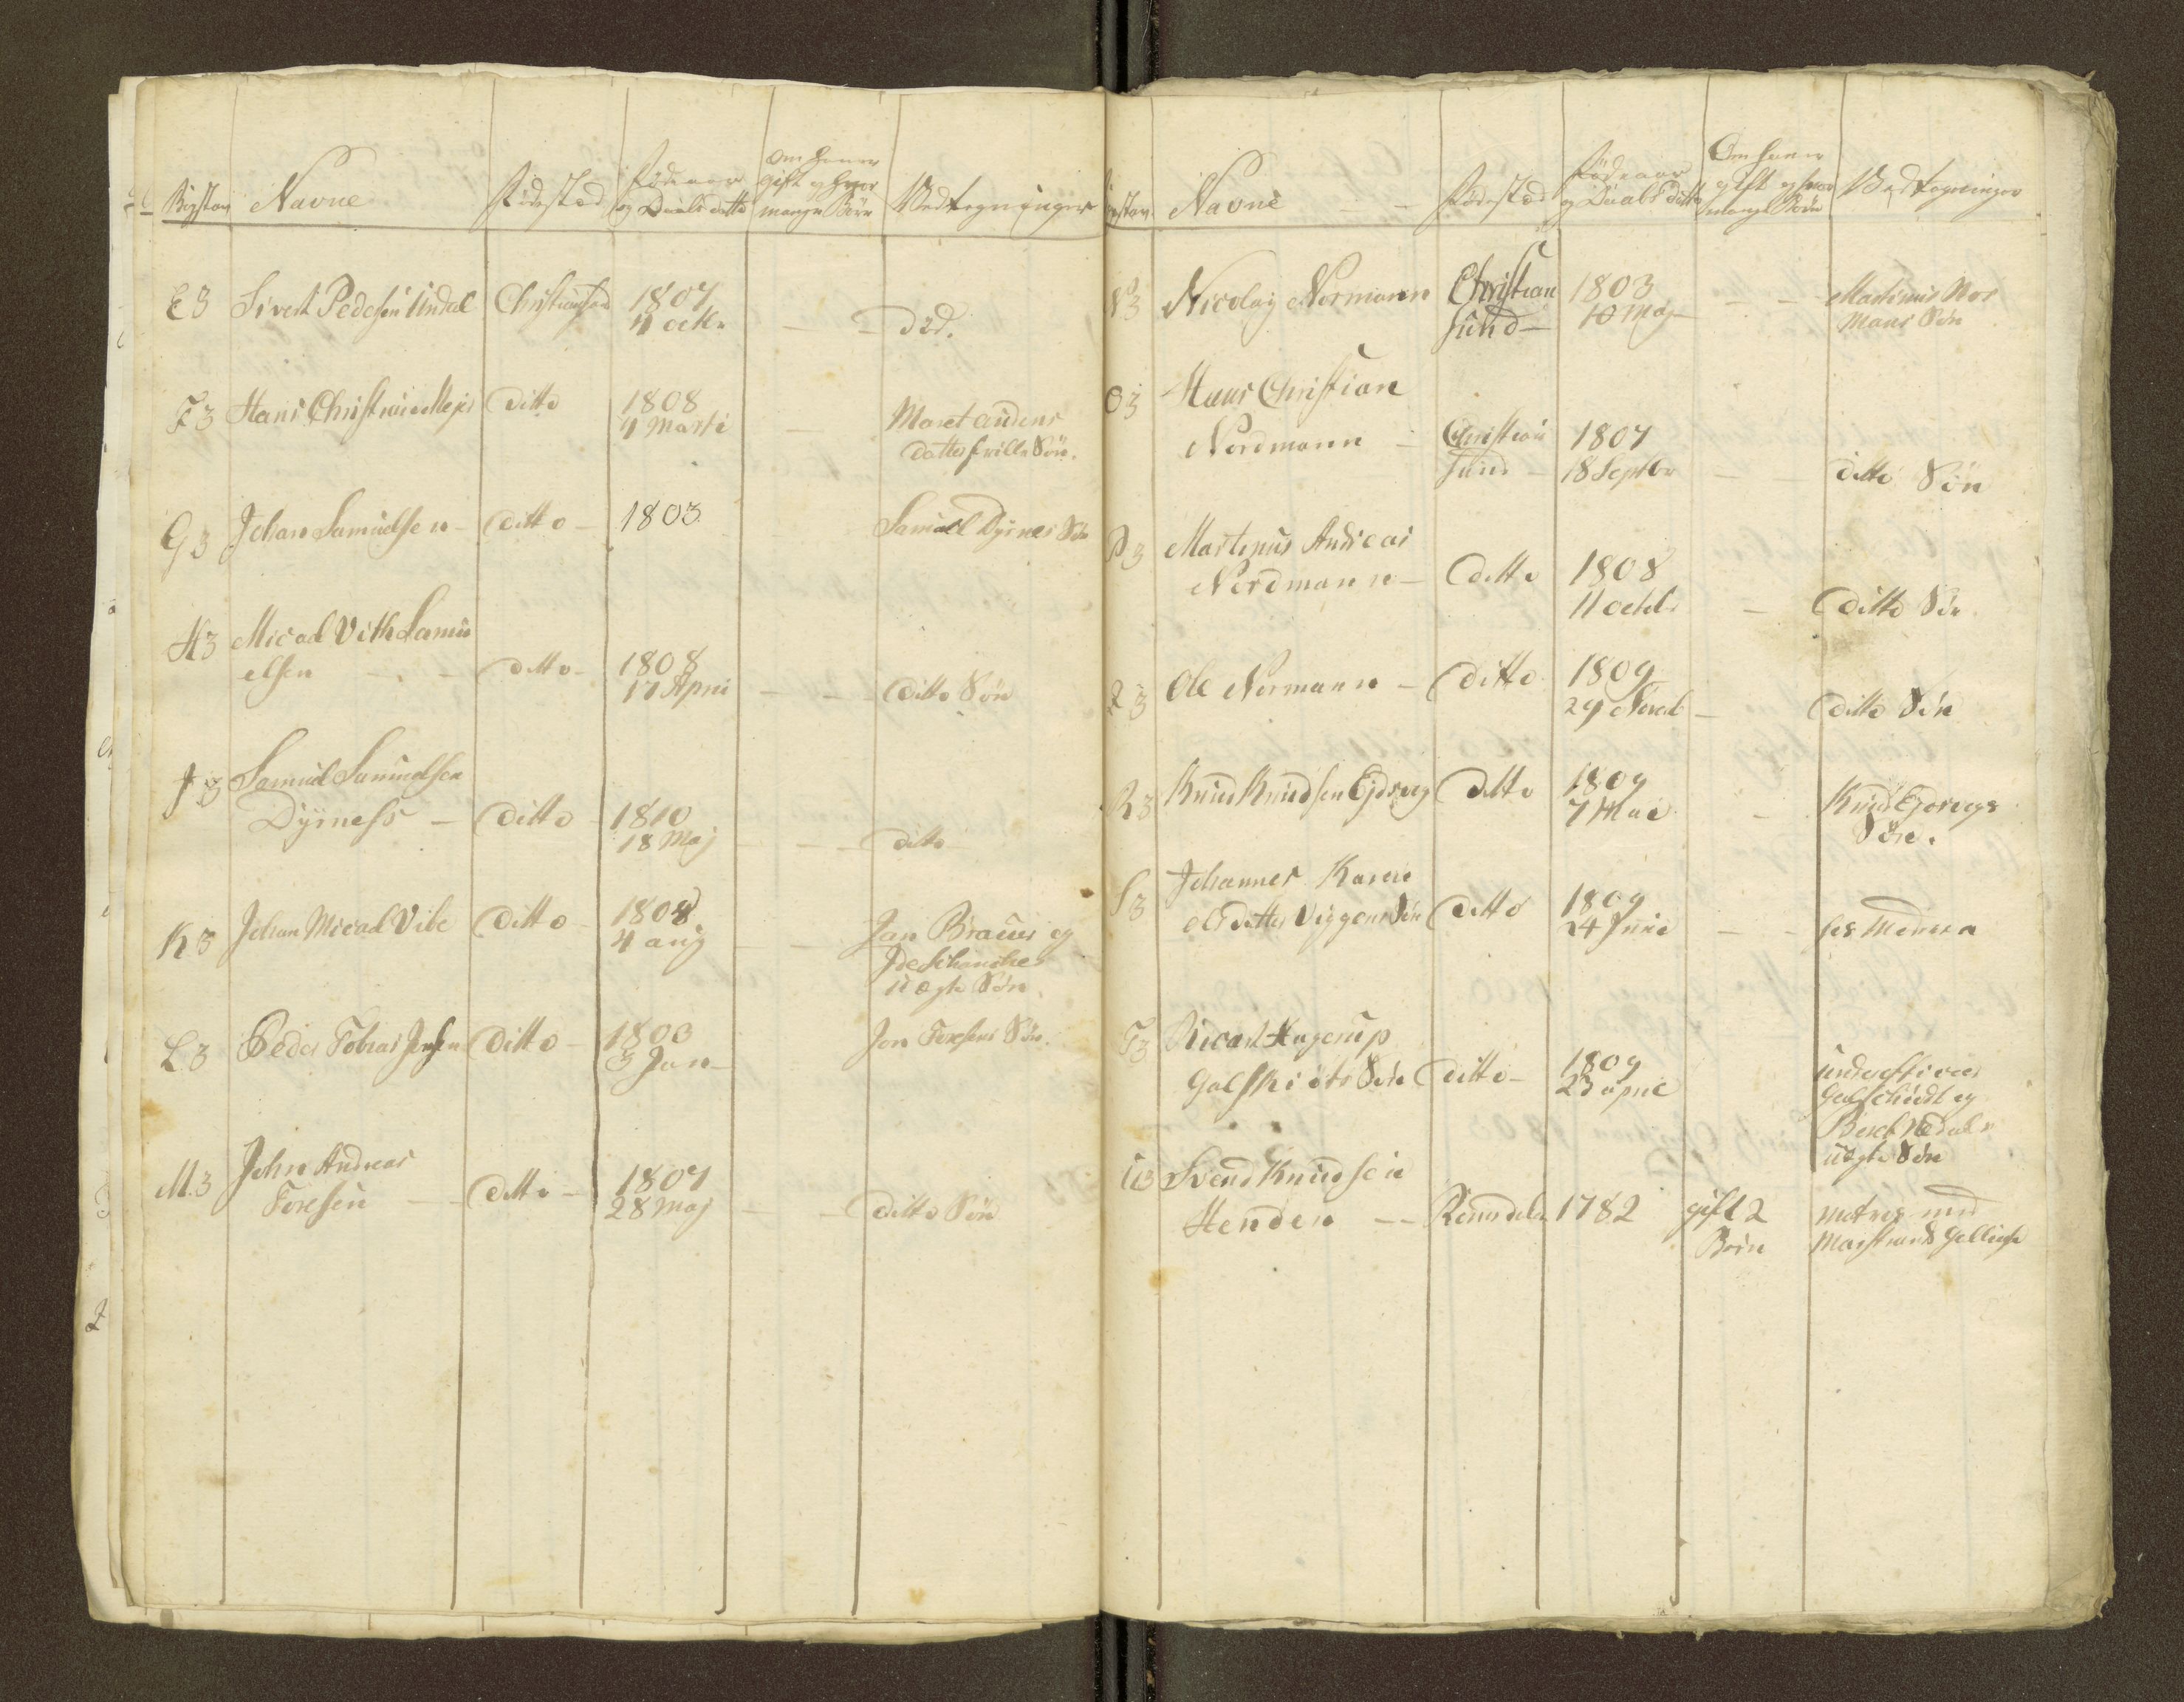 Bogstav Navne Födested Födeaar og Daabs ditto Om han er gift og hvor mange Börn Vedtegninger
E 3 Sivert Pedersen Undal Christiansund 1807
4 octr. – – död.
F 3 Hans Christian Mejer Ditto 1808
4 Marti – Maret
Datter frille Sön.
G 3 Johan Samuelsen – Ditto – 1803 Samuel Dyrnes Sön
H 3 Micael Vith Samu
elsen – – ditto – 1808
17 Apri – – Ditto Sön
J 3 Samuel Samuelsen
Dyrness – Ditto – 1810
18 Maj – – – ditto
K 3 Johan Micael Vibe Ditto – 1808
4 aug – – Jan og
uægte Sön.
L 3 Peder Tobias Jensen Ditto – 1803
3 Jan – Jon Toresens Sön.
M. 3 John Andreas
Toresen – – Ditto – 1807
28 Maj – – Ditto Sön
Bogstav Navne – – Födested Födeaar og Daabs Ditto Om han er gift og hvor mange Börn Vedtegninger
N 3 Nicolay Normann Christian 1803 – – Martinus Nor
sund – 10 Maj – Mans Sön
O 3 Hans Christian
Nordmann – Christian 1807
sund – 18 Septbr – – ditto Sön
P 3 Martinus Andreas
Nordmann – Ditto 1808
11 octbr – Ditto Sön
Q 3 Ole Normann – Ditto 1809
29 Novb – Ditto Sön
R 3 Knud Knudsen Ditto 1809 Knud
7 Mai – Sön.
S 3 Johannes Karen
Viggens Sön Ditto 1809
24 Junie – –
T 3 Ricart Hagerup
Galskiöts Sön Ditto – 1809
23 april
og
uægte Sön
U 3 Svend Knudsen
Henden – – Romsdalen 1782 gift 2
Börn